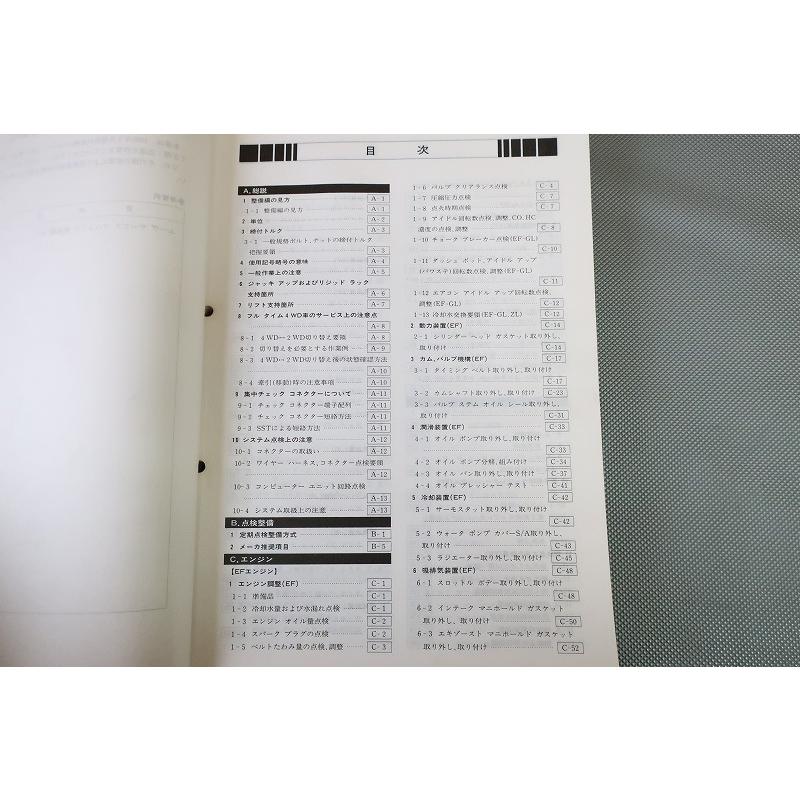 目 次
A. 総説
1 整備編の見方 A-1
1-1 整備編の見方 A-1
2 単位 A-2
3 締付トルク A-3
3-1 一般規格ボルト、ナットの締付トルク
把握要領 A-3
4 使用記号略号の意味 A-4
5 一般作業上の注意 A-5
6 ジャッキ アップおよびリジッド ラック
支持箇所 A-6
7 リフト支持箇所 A-7
8 フル タイム4WD車のサービス上の注意点
A-8
8-1 4WD↔2WD切り替え要領 A-8
8-2 切り替えを必要とする作業例 A-9
8-3 4WD↔2WD切り替え後の状態確認方法
A-10
8-4 牽引(移動)時の注意事項 A-10
9 集中チェック コネクターについて A-11
9-1 チェック コネクター端子配列 A-11
9-2 チェック コネクター短絡方法 A-11
9-3 SSTによる短絡方法 A-11
10 システム点検上の注意 A-12
10-1 コネクターの取扱い A-12
10-2 ワイヤー ハーネス、コネクター点検要領
A-12
10-3 コンピューター ユニット回路点検
A-13
10-4 システム取扱上の注意 A-13
B. 点検整備
1 定期点検整備方式 B-1
2 メーカ推奨項目 B-5
C. エンジン
【EFエンジン】
1 エンジン調整(EF) C-1
1-1 準備品 C-1
1-2 冷却水量および水漏れ点検 C-1
1-3 エンジン オイル量点検 C-2
1-4 スパーク プラグの点検 C-2
1-5 ベルトたわみ量の点検、調整 C-3
1-6 バルブ クリアランス点検 C-4
1-7 圧縮圧力点検 C-7
1-8 点火時期点検 C-7
1-9 アイドル回転数点検、調整、CO、HC
濃度の点検、調整 C-8
1-10 チョーク ブレーカー点検(EF-GL)
C-10
1-11 ダッシュ ポット、アイドル アップ
(パワステ)回転数点検、調整(EF-GL)
C-11
1-12 エアコン アイドル アップ回転数点検、
調整(EF-GL) C-12
1-13 冷却水交換要領(EF-GL、ZL) C-12
2 動力装置(EF) C-14
2-1 シリンダー ヘッド ガスケット取り外し、
取り付け C-14
3 カム、バルブ機構(EF) C-17
3-1 タイミング ベルト取り外し、取り付け
C-17
3-2 カムシャフト取り外し、取り付け C-23
3-3 バルブ ステム オイル シール取り外し、
取り付け C-31
4 潤滑装置(EF) C-33
4-1 オイル ポンプ取り外し、取り付け
C-33
4-2 オイル ポンプ分解、組み付け C-34
4-3 オイル パン取り外し、取り付け C-37
4-4 オイル プレッシャー テスト C-41
5 冷却装置(EF) C-42
5-1 サーモスタット取り外し、取り付け
C-42
5-2 ウォータ ポンプ カバーS/A取り外し、
取り付け C-43
5-3 ラジエーター取り外し、取り付け C-45
6 吸排気装置(EF) C-48
6-1 スロットル ボデー取り外し、取り付け
C-48
6-2 インテーク マニホールド ガスケット
取り外し、取り付け C-50
6-3 エキゾースト マニホールド ガスケット
取り外し、取り付け C-52